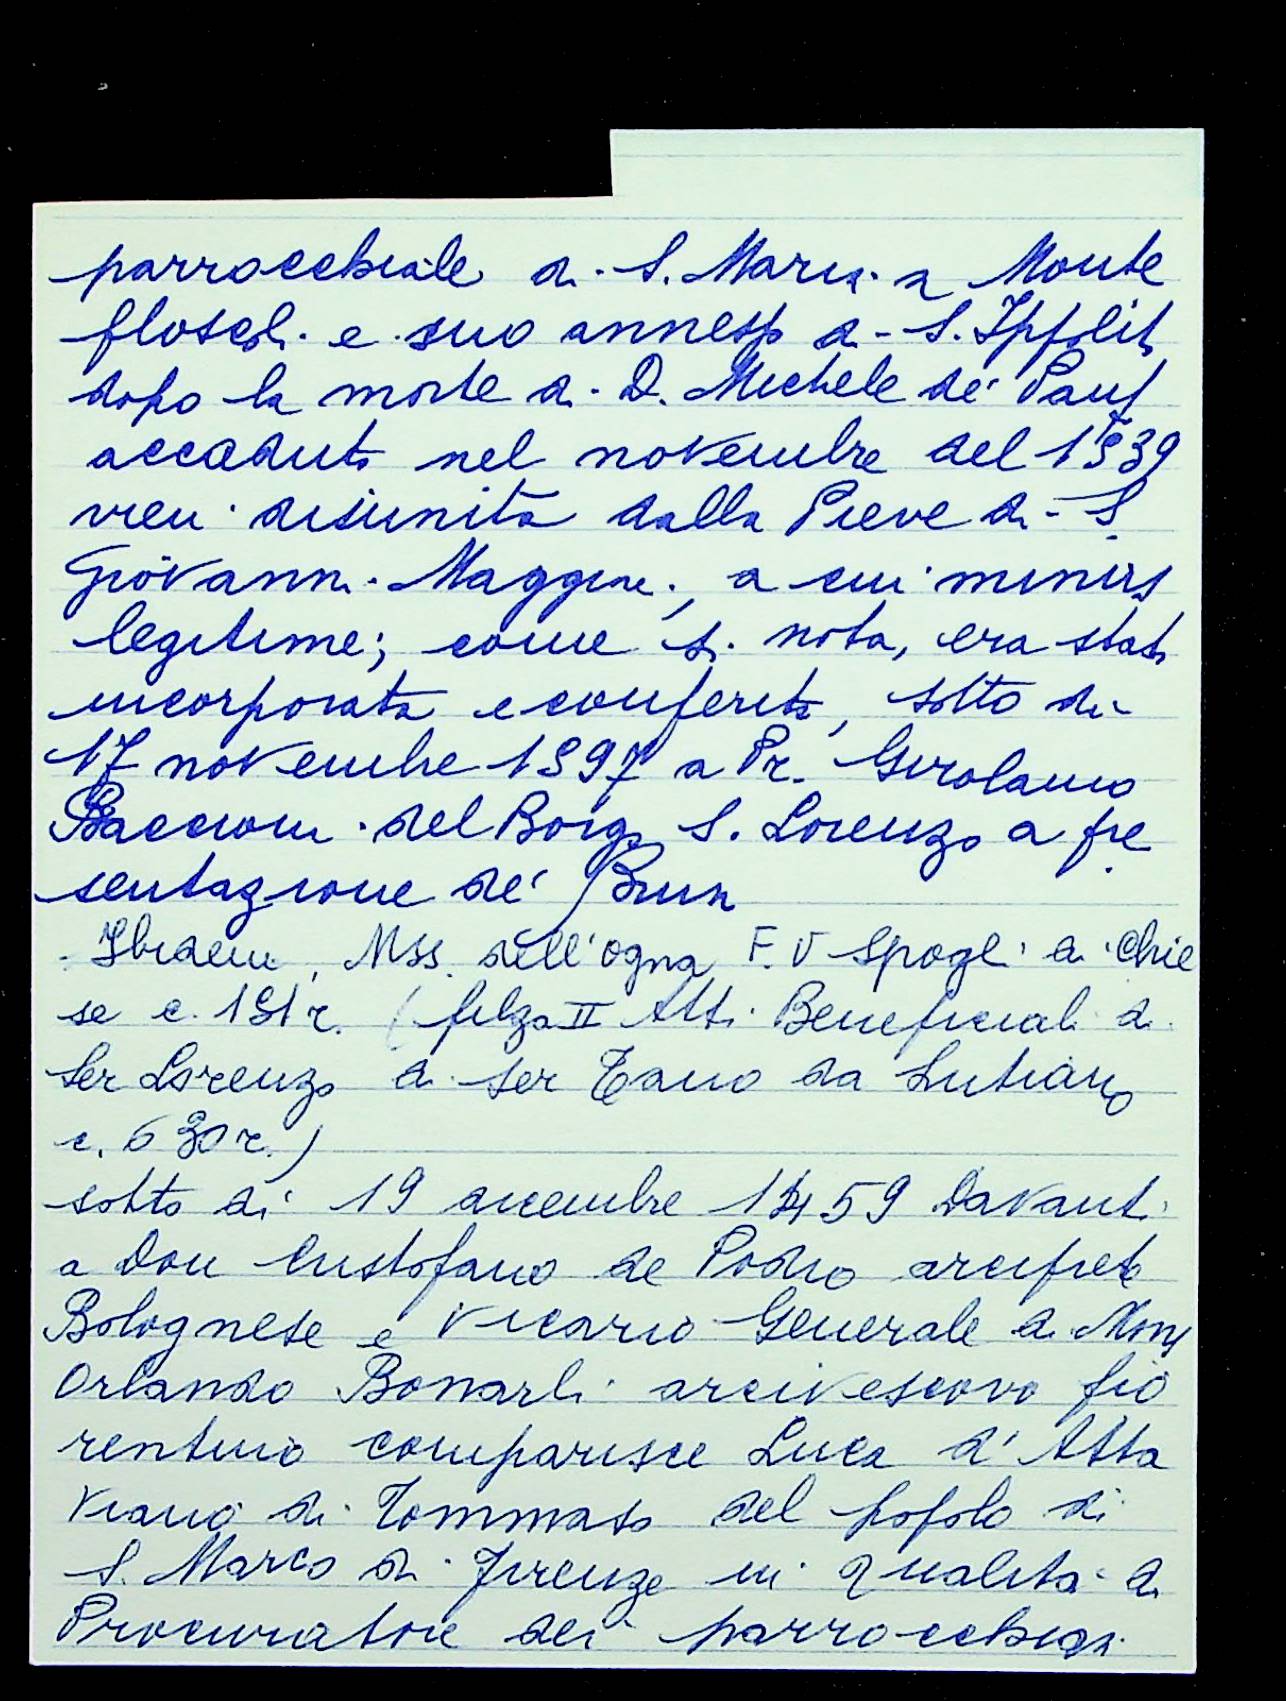 parrocchiale di S. Maria a Monte
floscoli e suo annesso di S. Ippolito
dopo la morte di D. Michele de' Pauf
accaduto nel novembre del 1539
vien disunita dalla Pieve di S.
Giovanni Maggiore, a cui minus
legitime; come si nota, era stata
incorporata e conferita, sotto di
17 novembre 1597 a Pr. Girolamo
Baccioni del Borgo S. Lorenzo a pre
sentazione de'
Ibidem, Mss. dell'Ogna F. V Spogli di Chie
se c. 151r. (filza II Atti Beneficiali di
Ser Lorenzo di ser Tano da Lutiano
c. 630r.)
sotto di 19 dicembre 1459 Davanti
a Don Cristofano de Podio arciprete
Bolognese e Vicario Generale di Mons
Orlando Bonarli arcivescovo fio
rentino comparisce Luca d'Atta
viano di Tommaso del popolo di
S. Marco di Firenze in qualità di
Procuratore dei parrocchiani